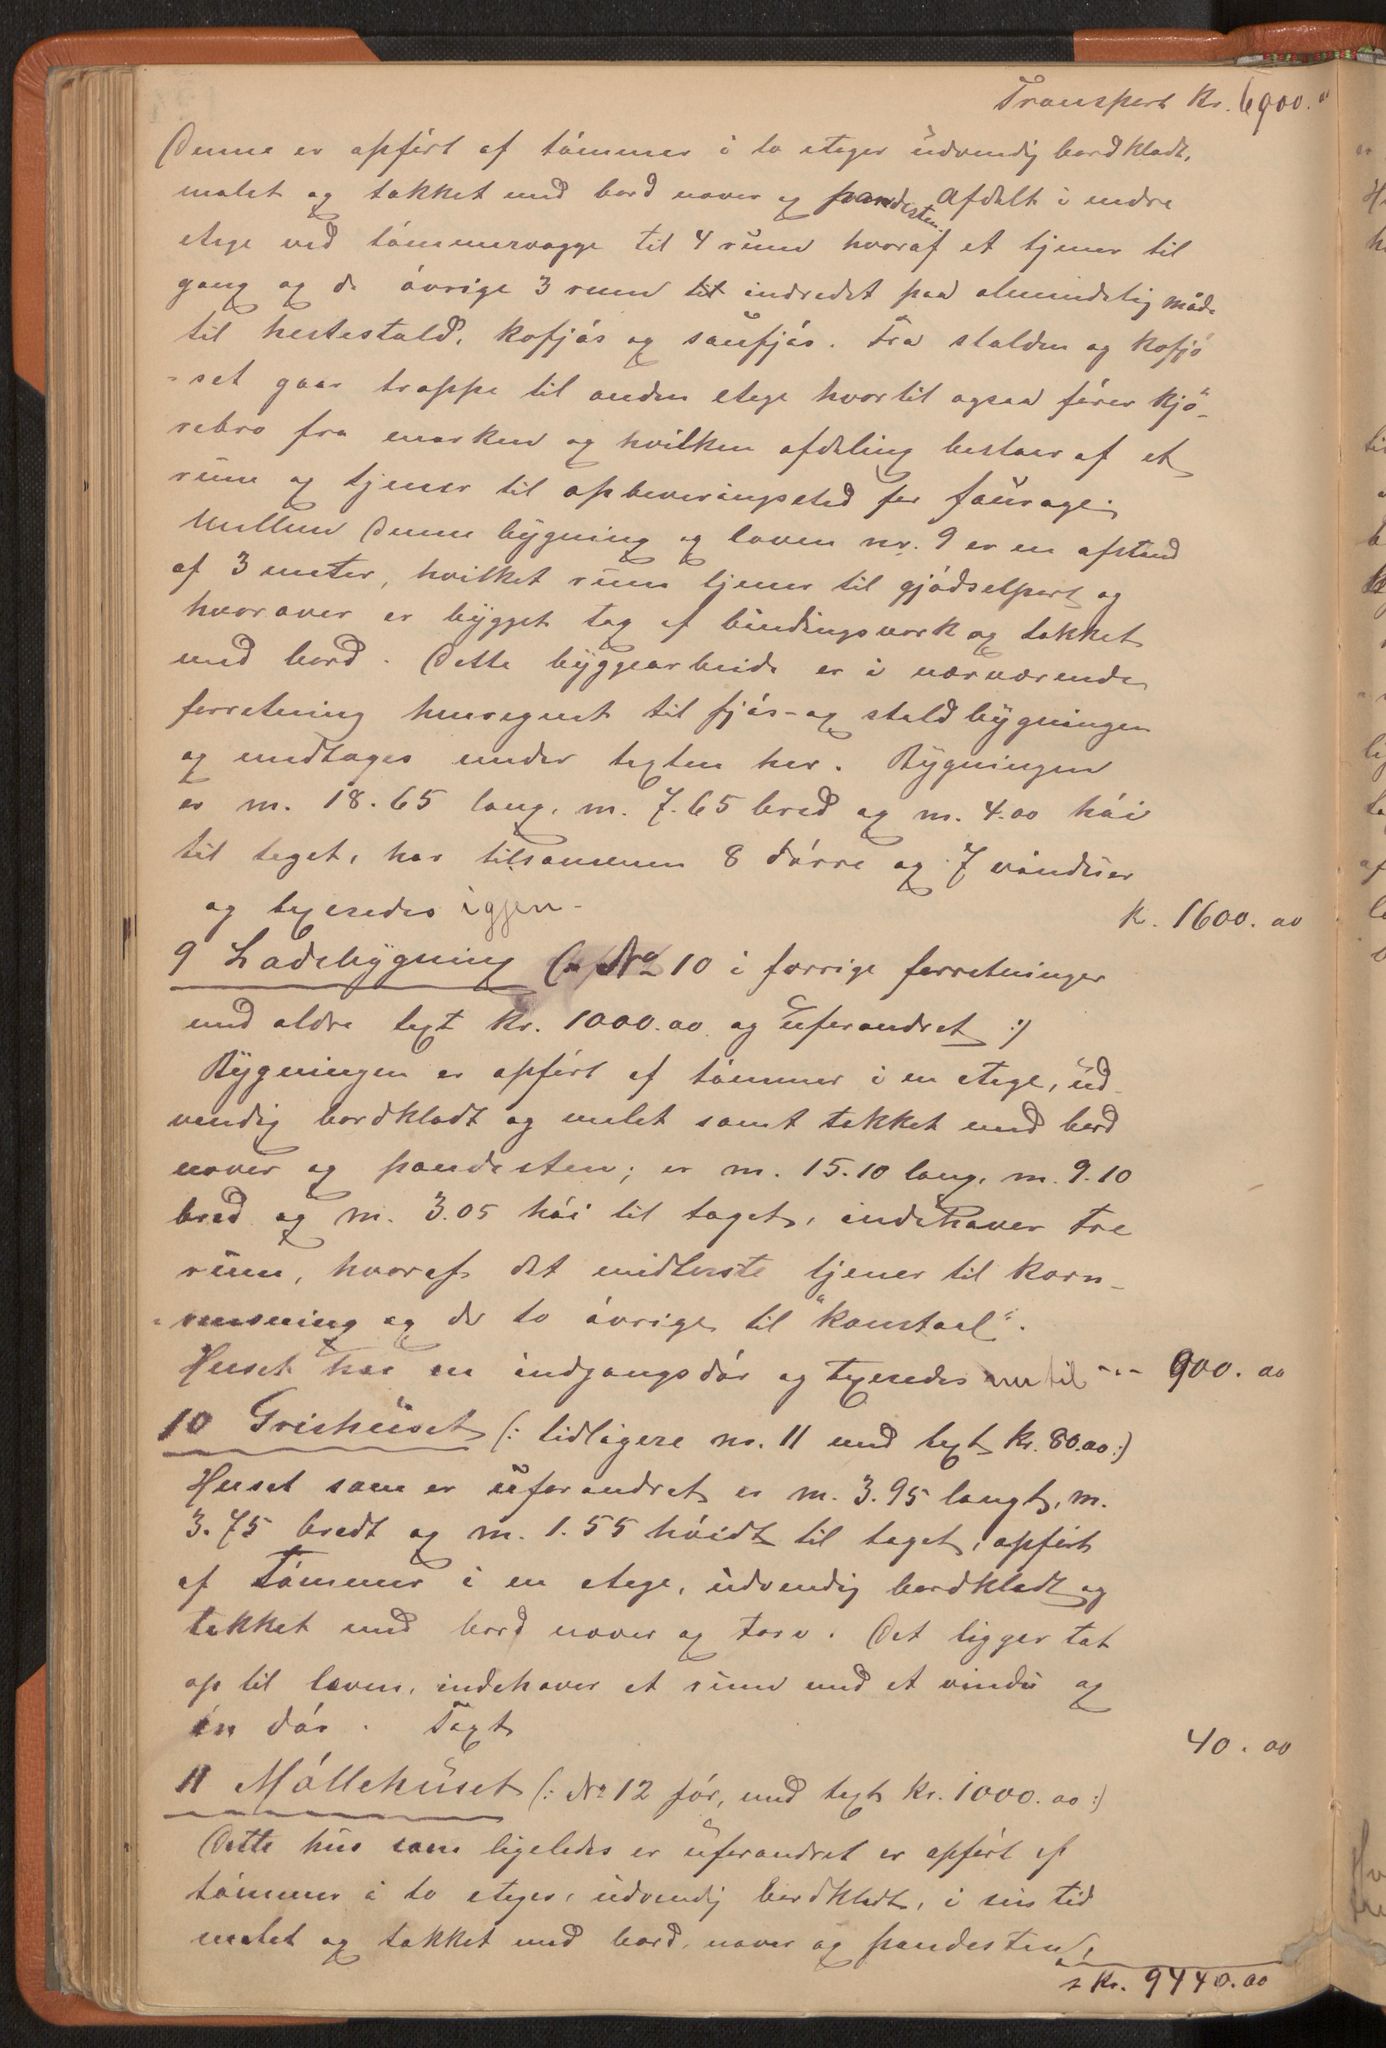 Transport Kr. 6900.00
Denne er opført af tømmer i to etager udvendig bordklædt,
malet og tækket med bord næver og pandesten. Afdelt i nedre
etage ved tømmervægge til 4 rum hvoraf et tjener til
gang og de øvrige 3 rum til indredet paa almindelig måde
til hestestald, kofjøs og saufjøs. Fra stalden og kofjø
-set gaar trappe til anden etage hvortil ogsaa fører kjø-
rebro fra marken og hvilken afdeling bestaar af et
rum og tjener til opbevaringssted for fourage.
Mellem denne bygning og loven nr. 9 er en afstand
af 3 meter, hvilket rum tjener til gjødselport og
hvorover er bygget tag af bindingsverk og tækket
med bord. Dette byggearbeide er i nærværende
forretning henregnet til fjøs- og staldbygningen
og medtages under taxten her. Bygningen
er m. 18.65 lang, m. 7.65 bred og m. 4.00 høi
til taget, har tilsammen 8 dørre og 7 vinduer
og taxeredes igjen - Kr. 1600.00
9 Ladebygning (: No 10 i forrige forretninger
med ældre taxt Kr. 1000.00 og uforandret :)
Bygningen er opført af tømmer i en etage, ud-
vendig bordklædt og malet samt tækket med bord
næver og pandesten; er m. 15.10 lang, m. 9.10
bred og m. 3.05 høi til taget, indehaver tre
rum, hvoraf det midterste tjener til korn-
-rensning og de to øvrige til "kornstael".
Huset har en indgangsdør og taxeredes nu til --- 900.00
10 Grishuset (: tidligere nr. 11 med taxt Kr. 80.00 :)
Huset som er uforandret er m. 3.95 langt, m.
3.75 bredt og m. 1.55 høidt til taget, opført
af Tømmer i en etage, udvendig bordklædt og
tækket med bord næver og torv. Det ligger tæt
op til loven, indehaver et rum med et vindu og
én dør. Taxt 40.00
11 Møllehuset (: No 12 før, med taxt Kr. 1000.00 :)
Dette hus som ligeledes er uforandret er opført af
tømmer i to etager, udvendig bordklædt, i sin tid
malet og tækket med bord, næver og pandesten,
Kr. 9440.00